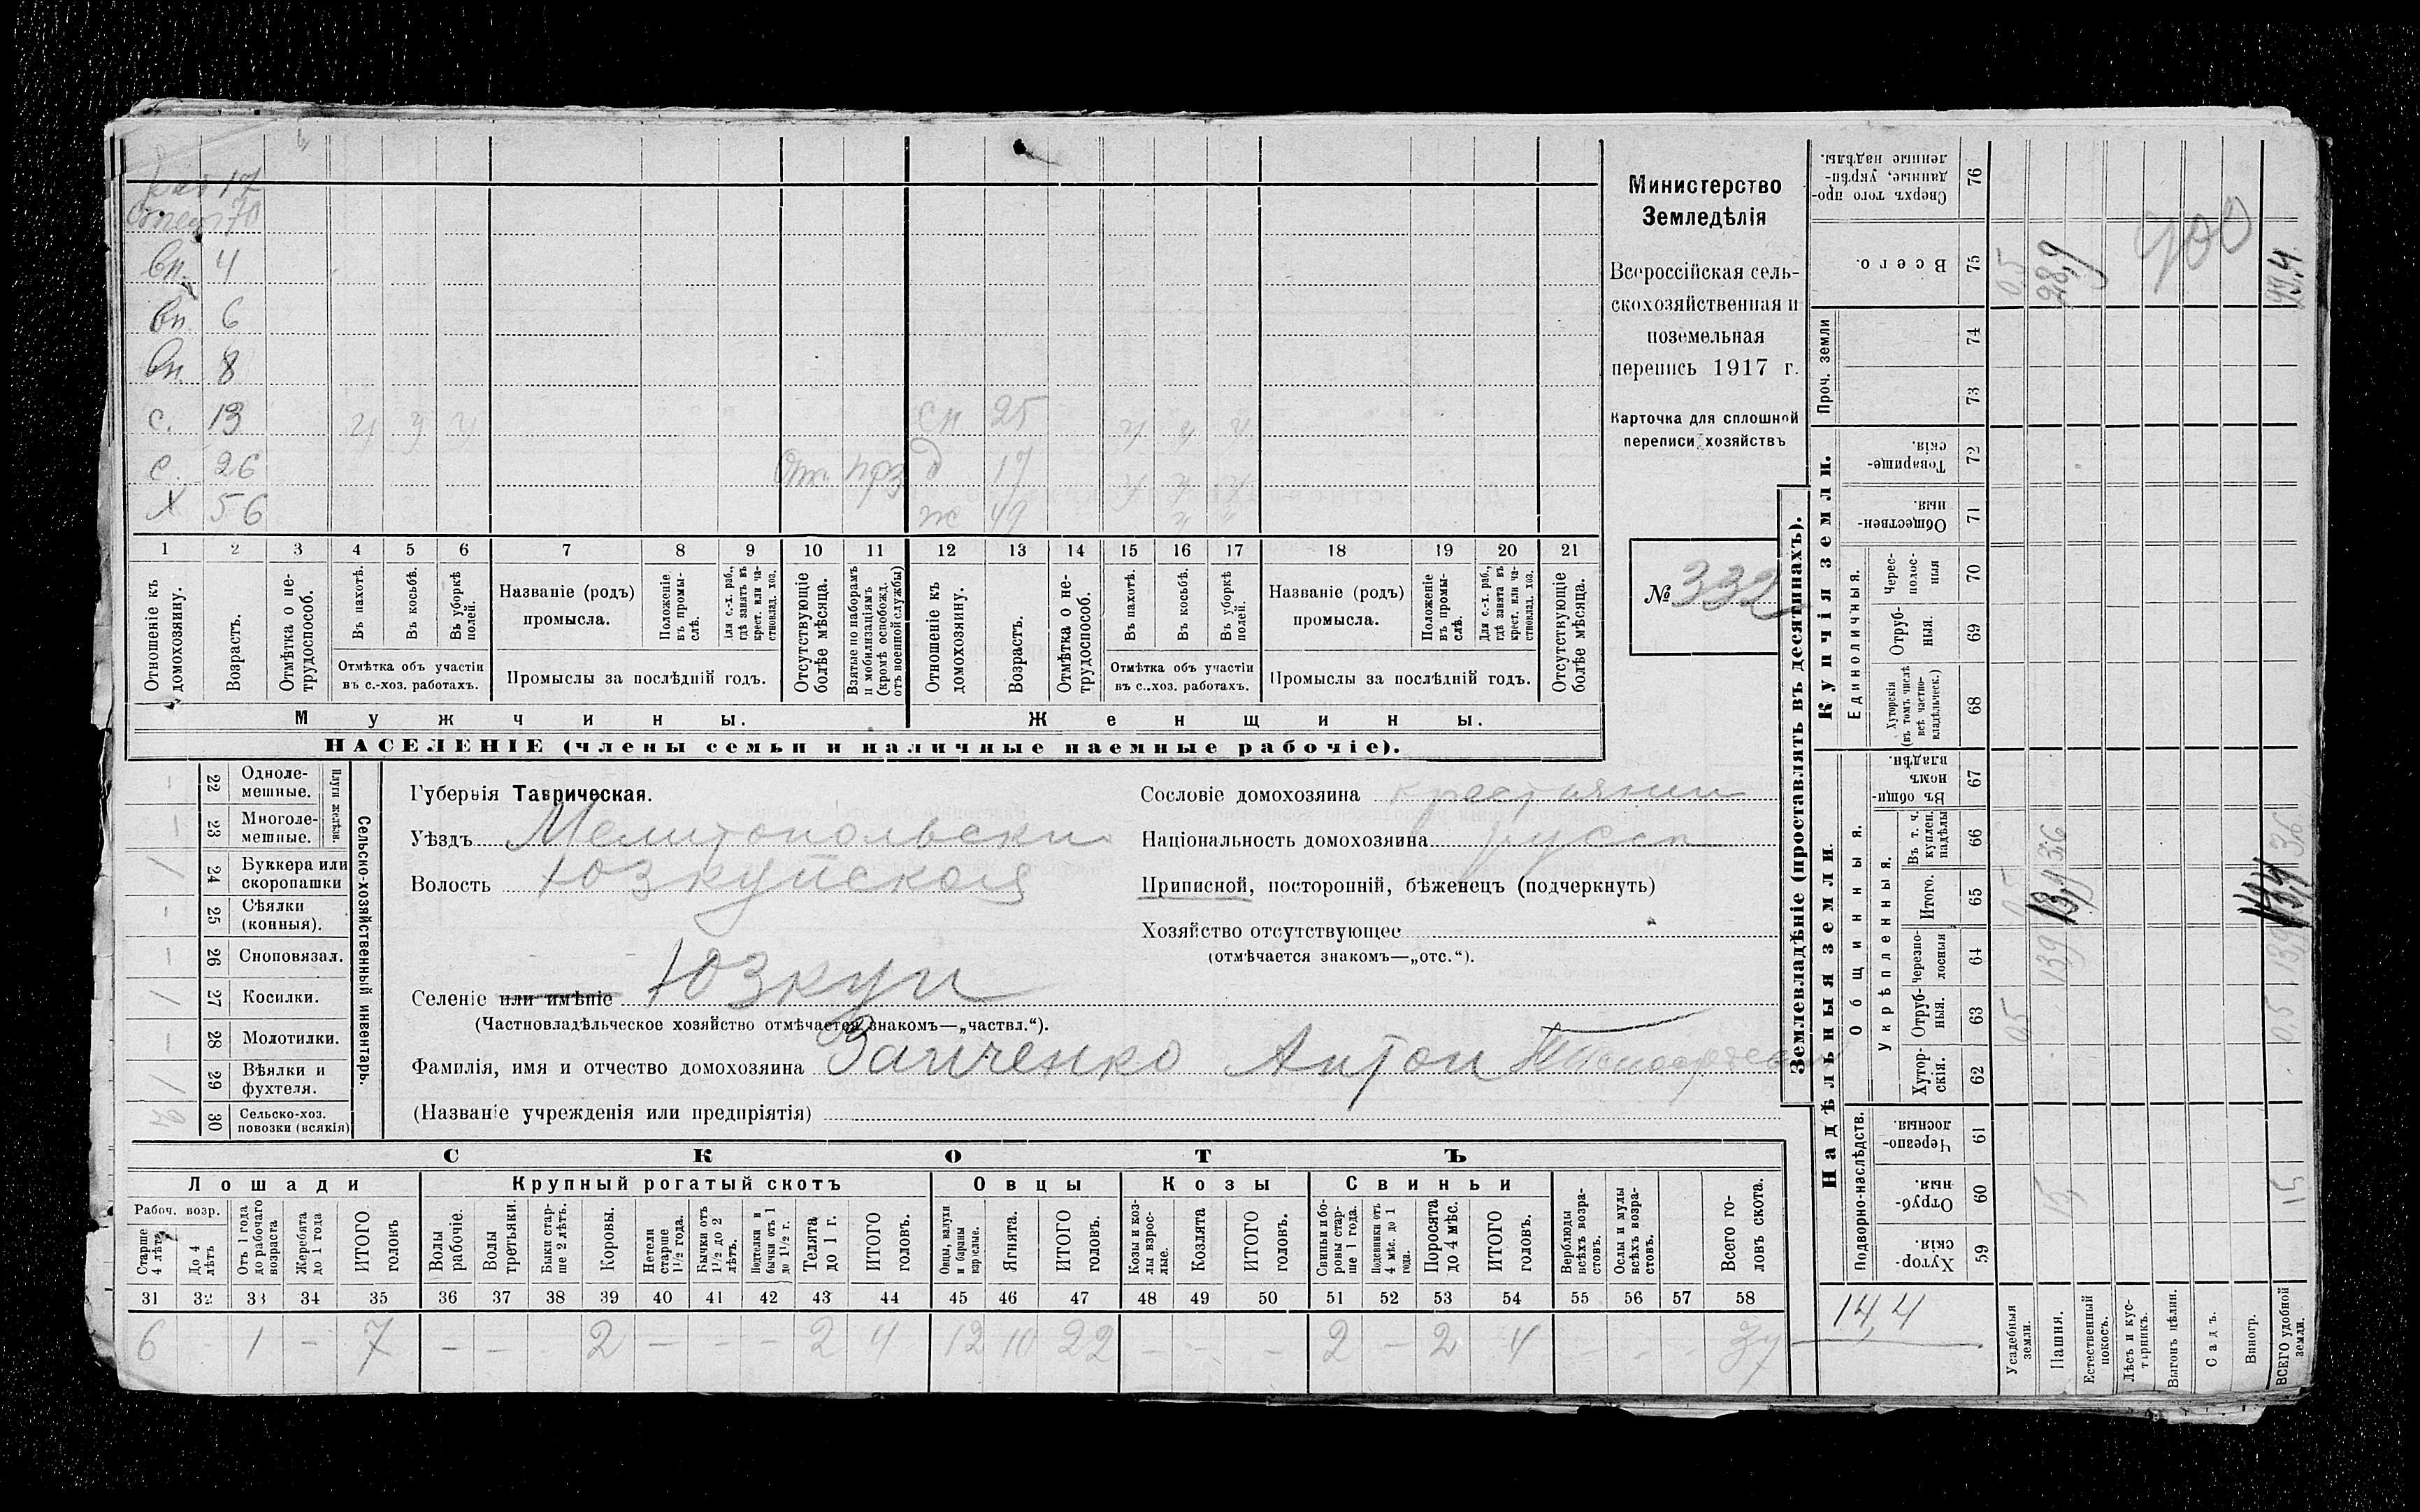 17
70
вн. 4
вн. 6
вн. 8
с. 13 у у у сн 25 у у у
с. 26 д 17 у у у
Х 56 ж 49 " "
1 2 3 4 5 6 7 8 9 10 11 12 13 14 15 16 17 18 19 20 21
Отношеніе къ домохозяину.
Возрастъ.
Отмѣтка о нетрудоспособ.
Въ пахотѣ.
Въ косьбѣ.
Въ уборкѣ полей.
Отмѣтка объ участіи
въ с.-хоз. работахъ.
Названіе (родъ)
промысла.
Положеніе въ промыслѣ.
Для с.-х. раб., гдѣ занятъ въ крест. или частновлад. хоз.
Промыслы за послѣдній годъ.
Отсутствующіе болѣе мѣсяца.
Взятые по наборамъ и мобилизаціямъ (кромѣ освобожд. отъ военной службы)
Отношеніе къ домохозяину.
Возрастъ.
Отмѣтка о нетрудоспособ.
Въ пахотѣ.
Въ косьбѣ.
Въ уборкѣ полей.
Отмѣтка объ участіи
въ с..хоз. работахъ.
Названіе (родъ)
промысла.
Положеніе въ промыслѣ.
Для с.-х. раб., гдѣ занята въ крест. или частновлад. хоз.
Промыслы за послѣдній годъ.
Отсутствующіе болѣе мѣсяца.
Мужчины.
Женщины.
НАСЕЛЕНІЕ (члены семьи и наличные наемные рабочіе).
Министерство
Земледѣлія
Всероссійская сель-
скохозяйственная и
поземельная
перепись 1917 г.
Карточка для сплошной
переписи хозяйствъ
№ 332
Сельско-хозяйственный инвентарь.
Плуги желѣзн.
– 22 Одноле-
мешные.
– 23 Многоле-
мешные.
/ 24 Буккера или
скоропашки
– 25 Сѣялки
(конныя).
– 26 Сноповязал.
/ 27 Косилки.
– 28 Молотилки.
/ 29 Вѣялки и
фухтеля.
30 Сельско-хоз.
повозки (всякія)
Губернія Таврическая.
Уѣздъ Мелитопольски
Волость Юзкуйская
Селеніе или имѣніе Юзкуи
(Частновладѣльческое хозяйство отмѣчается знакомъ—„частвл.“).
Фамилія, имя и отчество домохозяина Заиченко Антон
(Названіе учрежденія или предпріятія)
Сословіе домохозяина крестьянин
Національность домохозяина русск
Приписной, посторонній, бѣженецъ (подчеркнуть)
Хозяйство отсутствующее
(отмѣчается знакомъ—„отс.“).
СКОТЪ
Лошади
Крупный рогатый скотъ
Овцы
Козы
Свиньи
Рабоч. возр.
Старше 4 лѣтъ
До 4 лѣтъ
Отъ 1 года до рабочаго возраста
Жеребята до 1 года
ИТОГО головъ
Волы рабочіе.
Волы третьяки.
Быки старше 2 лѣтъ.
Коровы.
Нетели старше 1½ года.
Бычки отъ 1½ до 2 лѣтъ.
Подтелки и бычки отъ 1 до 1½ г.
Телята до 1 г.
ИТОГО головъ.
Овцы, валухи и бараны взрослые.
Ягнята.
ИТОГО головъ.
Козы и козлы взрослые.
Козлята
ИТОГО головъ.
Свиньи и боровы старше 1 года.
Подсвинки отъ 4 мѣс. до 1 года.
Поросята до 4 мѣс.
ИТОГО головъ.
Верблюды всѣхъ возрастовъ.
Ослы и мулы всѣхъ возрастовъ.
Всего головъ скота.
31 32 33 34 35 36 37 38 39 40 41 42 43 44 45 46 47 48 49 50 51 52 53 54 55 56 57 58
6 - 1 - 7 - - - 2 - - - 2 4 12 10 22 - - - 2 - 2 4 - - - 37
Землевладѣніе (проставлять въ десятинахъ).
Надѣльныя земли
Купчія земли.
Проч. земли
Подворно-наслѣдств.
Общинныя.
Укрѣпленныя.
Единоличныя.
Сверхъ того проданные, укрѣпленные надѣлы. 76
Всего. 75
74
73
Товарищескія. 72
Общественныя. 71
Чересполосныя 70
Отрубныя. 69
Хуторскія (въ томъ числѣ всѣ частновладѣльческ.) 68
Въ общинномъ владѣн. 67
Въ т. ч. куплен. надѣлы 66
Итого. 65
Черезполосныя 64
Отрубныя. 63
Хуторскія. 62
Черезполосныя. 61
Отрубныя. 60
Хуторскія. 59
14,4
Усадебныя земли. 0,5 0,5 0,5
Пашня. 15 13,9 13,4 36 28,9
Естественный покосъ.
Лѣсъ и кустарникъ.
Выгонъ цѣлин.
Садъ.
Виногр.
ВСЕГО удобной земли. 15 0,5 13,9 36